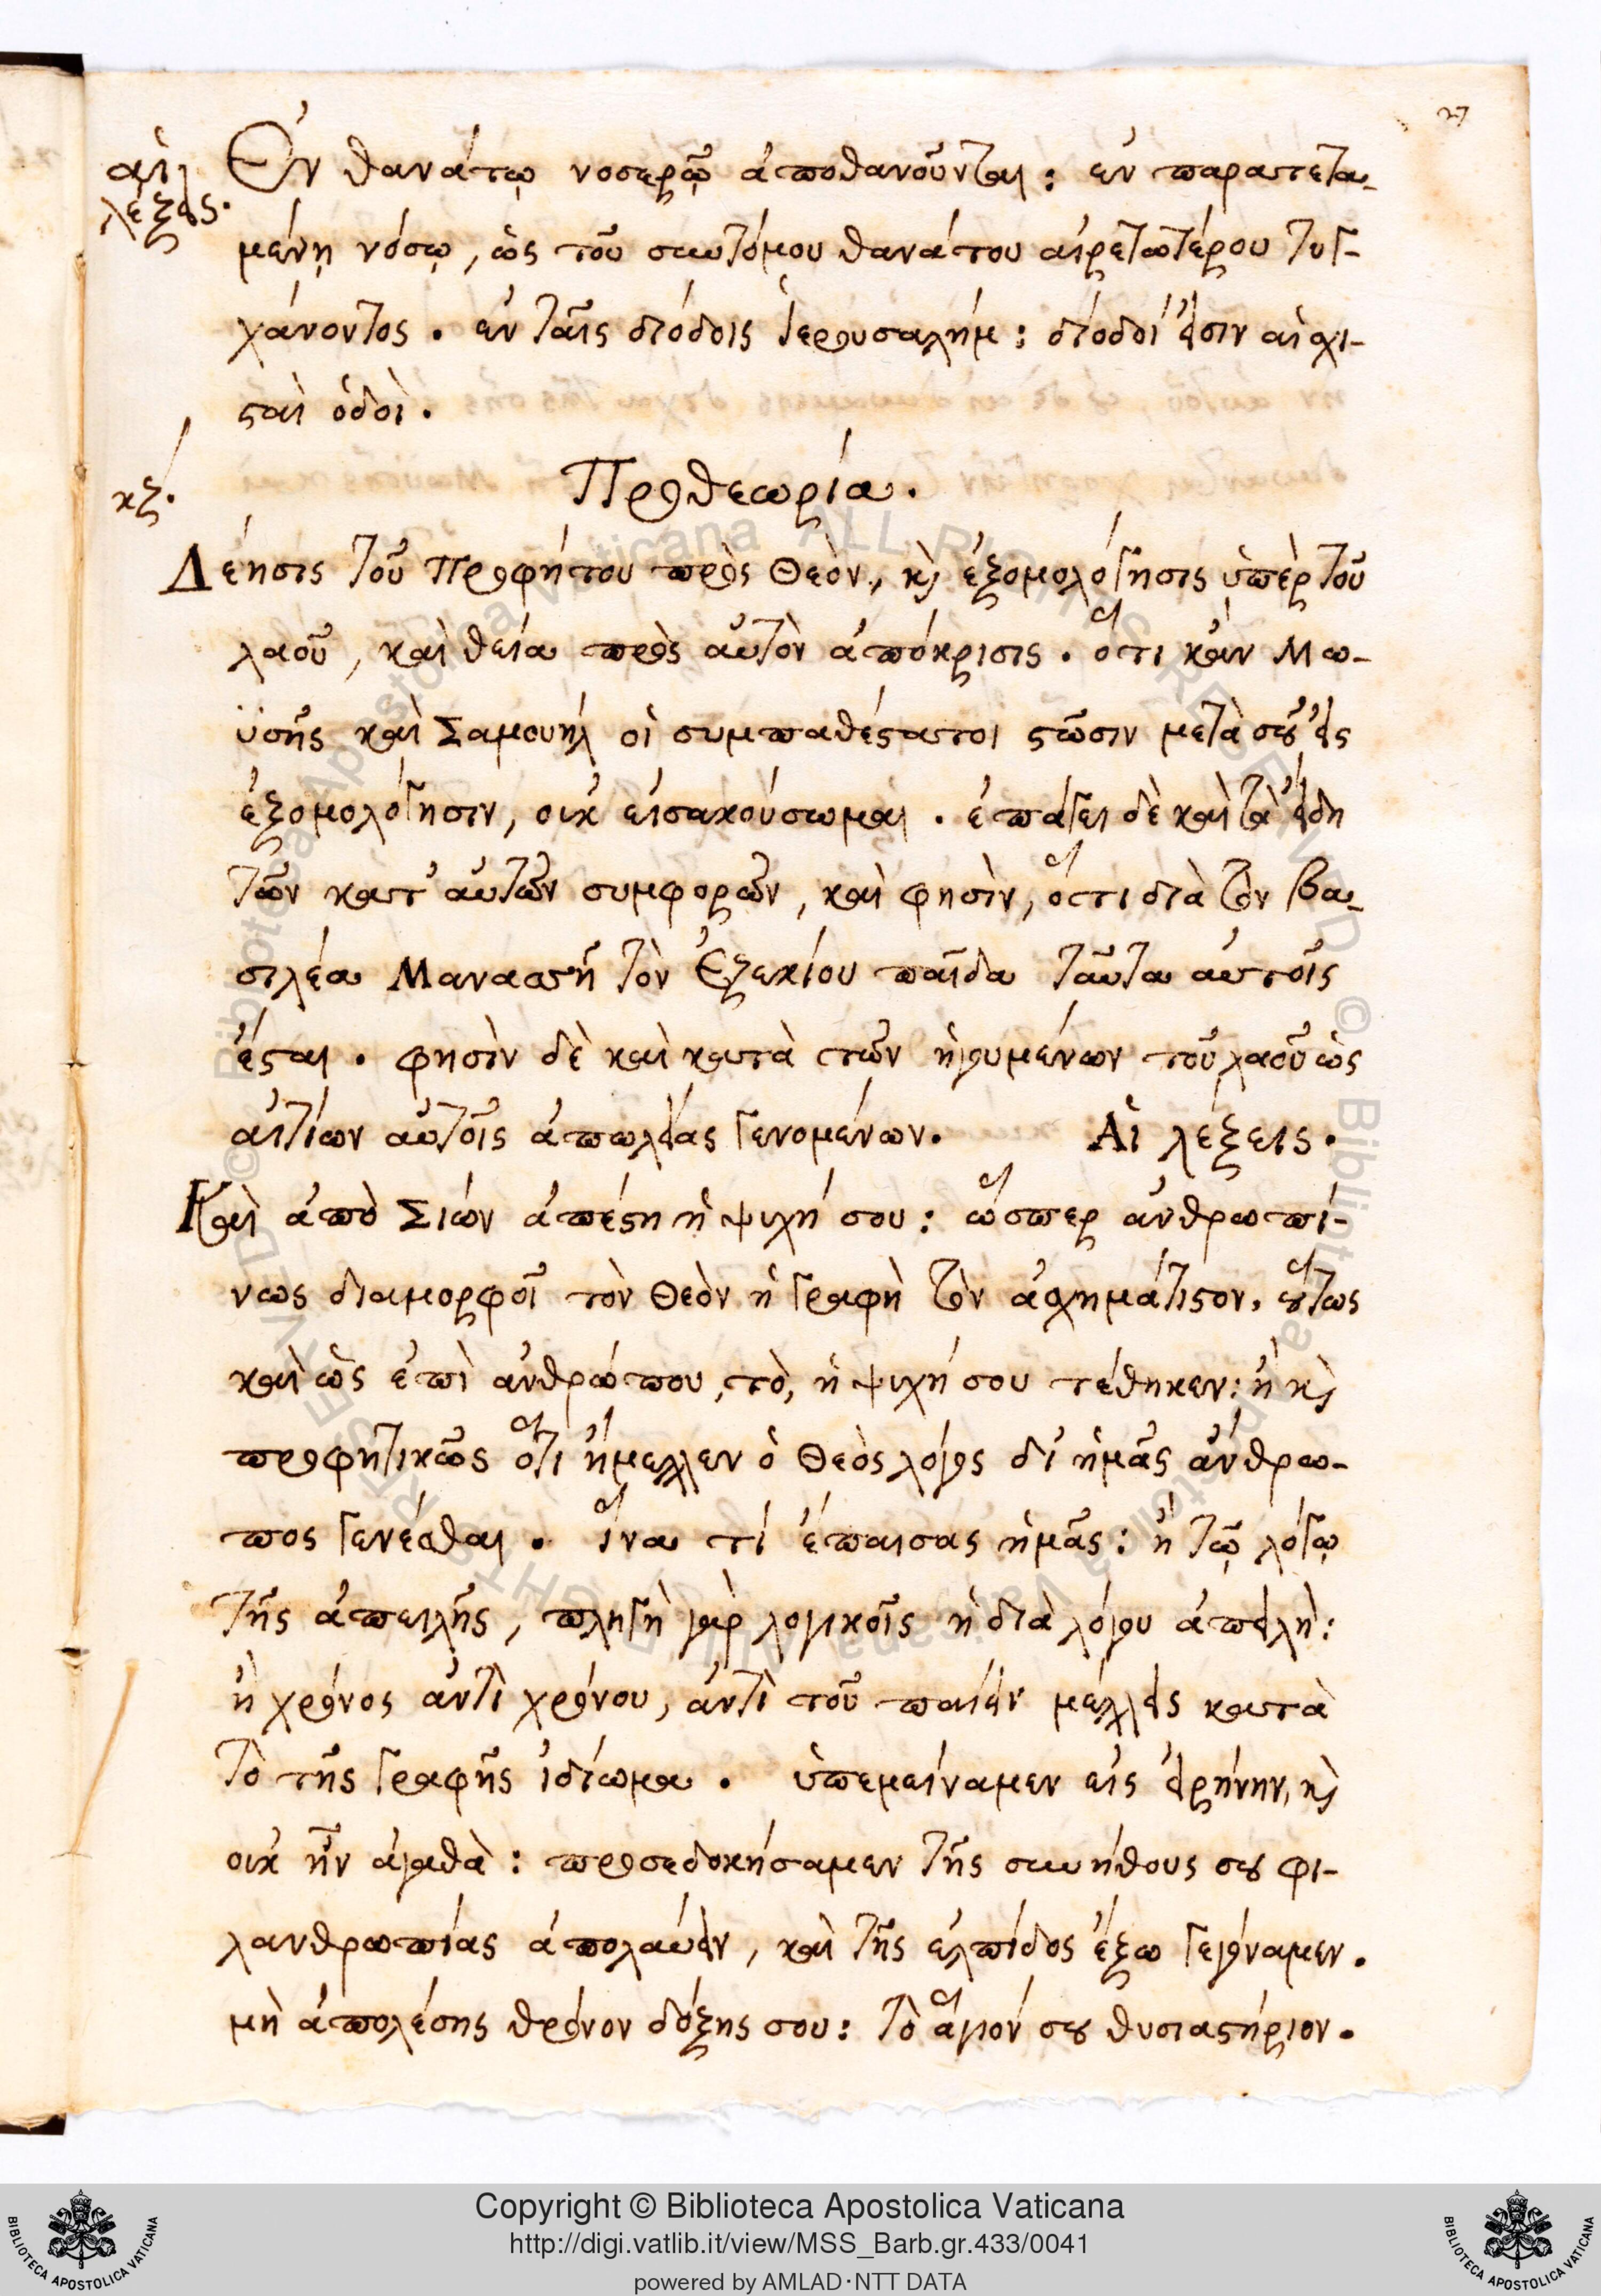 27
αἱ Ἐν θανάτῳ νοσερῷ ἀποθανοῦνται: ἐν παρατετα-
λέξεις.
μένῃ νόσῳ, ὡς τοῦ συντόμου θανάτου αἱρετωτέρου τυγ-
χάνοντος. ἐν ταῖς διόδοις Ἱερουσαλήμ: δίοδοί εἰσιν αἱ σχι-
σταὶ ὁδοὶ.
κζ. Προθεωρία.
Δέησις τοῦ Προφήτου πρὸς Θεὸν, καὶ ἐξομολόγησις ὑπὲρ τοῦ
λαοῦ, καὶ θεία πρὸς αὐτὸν ἀπόκρισις. ὅτι κἂν Μω-
ϋσῆς καὶ Σαμουὴλ οἱ συμπαθέστατοι στῶσιν μετὰ σοῦ εἰς
ἐξομολόγησιν, οὐκ εἰσακούσωμαι. ἐπάγει δὲ καὶ τὰ εἴδη
τῶν κατ' αὐτῶν συμφορῶν, καὶ φησὶν, ὅτι διὰ τὸν βα-
σιλέα Μανασσῆ τὸν Ἐζεκίου παῖδα ταῦτα αὐτοῖς
ἔσται. φησὶν δὲ καὶ κατὰ τῶν ἡγουμένων τοῦ λαοῦ ὡς
αἰτίων αὐτοῖς ἀπωλείας γενομένων. Αἱ λέξεις.
Καὶ ἀπὸ Σιὼν ἀπέστη ἡ ψυχή σου: ὥσπερ ἀνθρωπί-
νως διαμορφοῖ τὸν Θεὸν ἡ Γραφὴ τὸν ἀσχημάτιστον, οὕτως
καὶ ὡς ἐπὶ ἀνθρώπου, τὸ, ἡ ψυχή σου τέθηκεν: ἢ καὶ
προφητικῶς ὅτι ἤμελλεν ὁ Θεὸς λόγος δι' ἡμᾶς ἄνθρω-
πος γενέσθαι. ἵνα τί ἔπαισας ἡμᾶς: ἢ τῷ λόγῳ
τῆς ἀπειλῆς, πληγὴ γὰρ λογικοῖς ἡ διὰ λόγου ἀπειλὴ:
ἢ χρόνος ἀντὶ χρόνου, ἀντὶ τοῦ παίειν μέλλεις κατὰ
τὸ τῆς Γραφῆς ἰδίωμα. ὑπεμείναμεν εἰς εἰρήνην, καὶ
οὐκ ἦν ἀγαθὰ: προσεδοκήσαμεν τῆς συνήθους σου φι-
λανθρωπίας ἀπολαύειν, καὶ τῆς ἐλπίδος ἔξω γεγόναμεν.
μὴ ἀπολέσῃς θρόνον δόξης σου: τὸ ἅγιόν σου θυσιαστήριον.
Copyright © Biblioteca Apostolica Vaticana
http://digi.vatlib.it/view/MSS_Barb.gr.433/0041
powered by AMLAD·NTT DATA